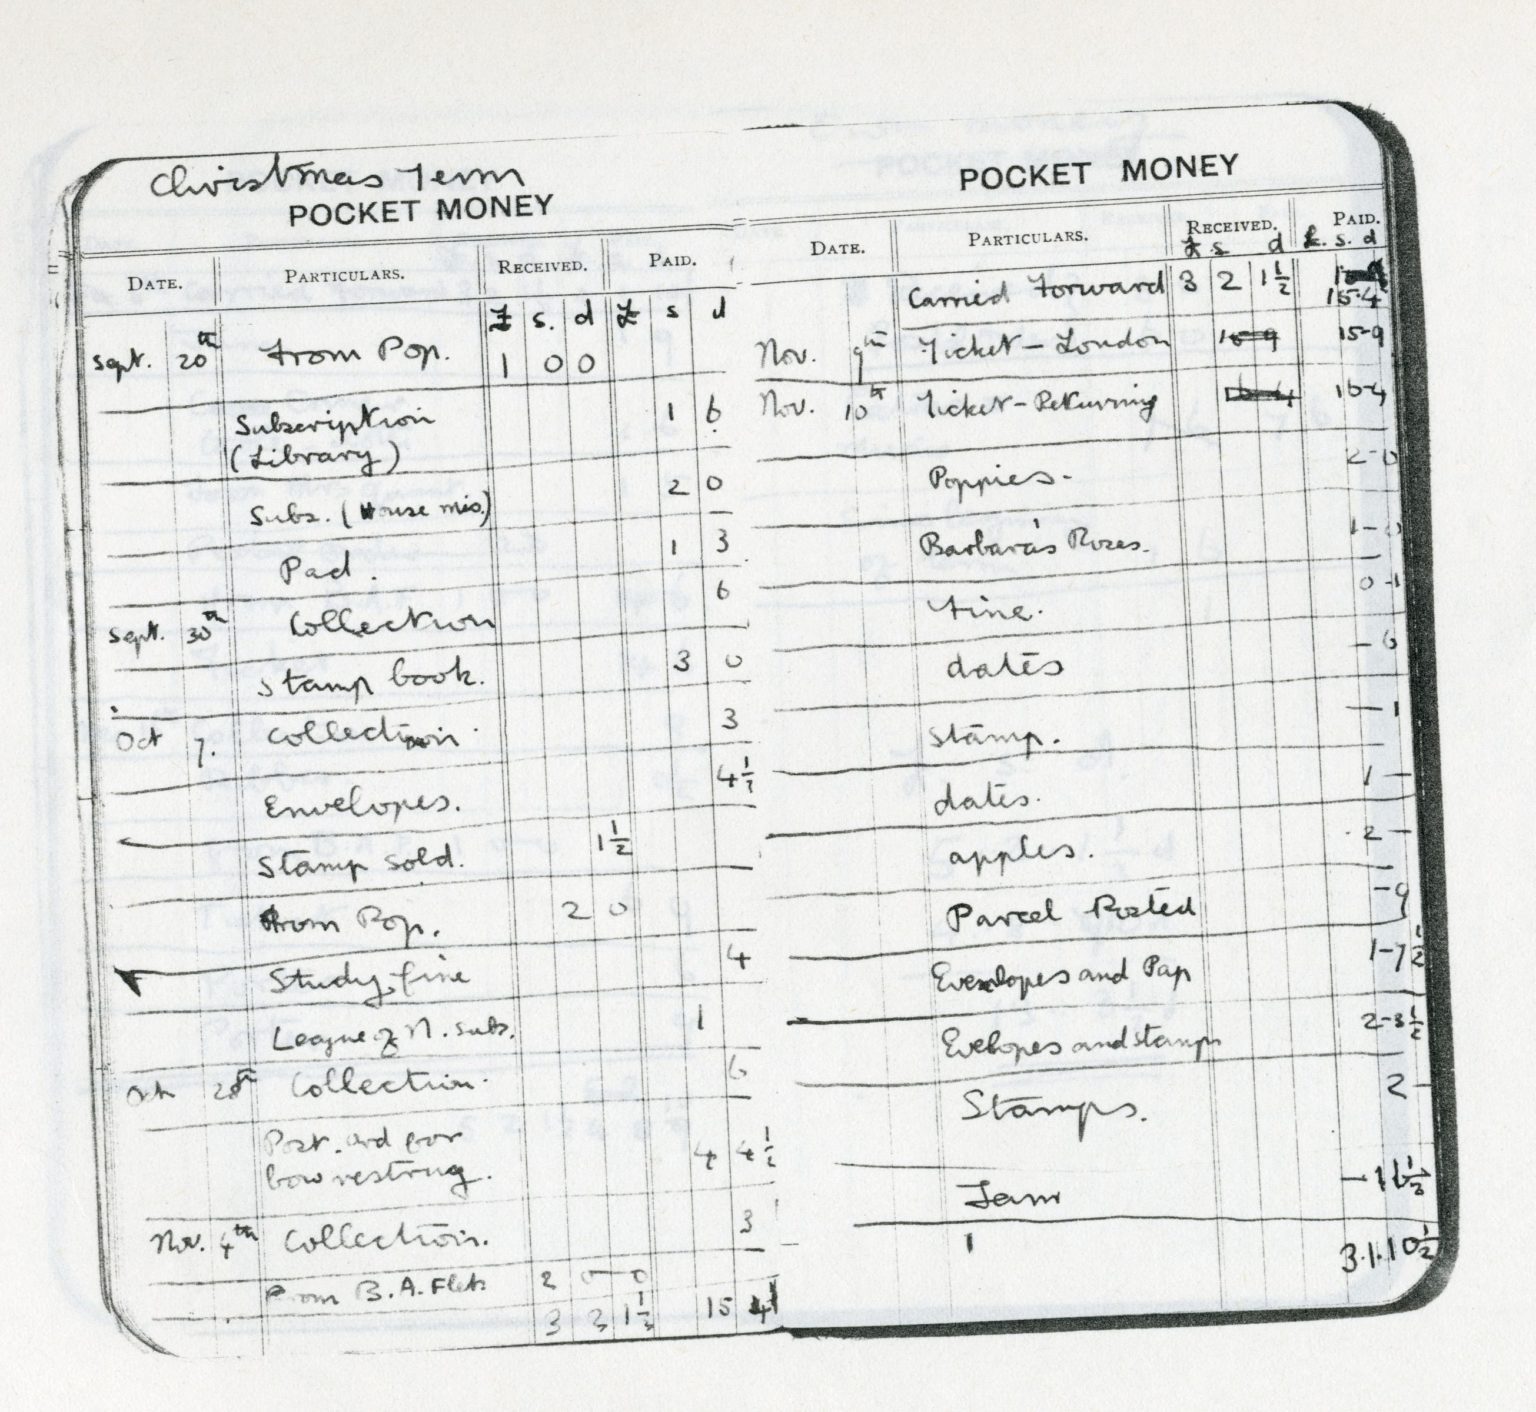 Christmas Term
POCKET MONEY
DATE. PARTICULARS. RECEIVED. PAID.
£ s. d £ s d
Sept. 20th From Pop. 1 0 0
Subscription 1 6
(Library)
Subs. (House mis.) 2 0
Pad. 1 3
Sept. 30th Collection 6
Stamp book. 3 0
Oct 7. Collection 3
Envelopes. 4½
Stamp sold. 1½
From Pop. 2 0
Study fine 4
League of N. subs. 1
Oct 28th Collection. 6
Post. and for
bow restrug. 4 4½
Nov. 4th Collection. 3
From B.A. 2 0 0
3 2 1½ 15 4
POCKET MONEY
DATE. PARTICULARS. RECEIVED. PAID.
£ s d £. s. d
Carried Forward 3 2 1½ 15.4
Nov. 9th Ticket - London 15-9 15-9
Nov. 10th Ticket - Returning 16-4
Poppies - 2-0
Barbara's Roses. 1-0
Fine. 0-1
dates - 6
Stamp. - 1
dates. 1 -
apples. 2 -
Parcel Posted - 9
Evenlopes and Pap 1-7½
Evelopes and stamps 2-3½
Stamps. 2 -
Jam - 11½
3.1.10½